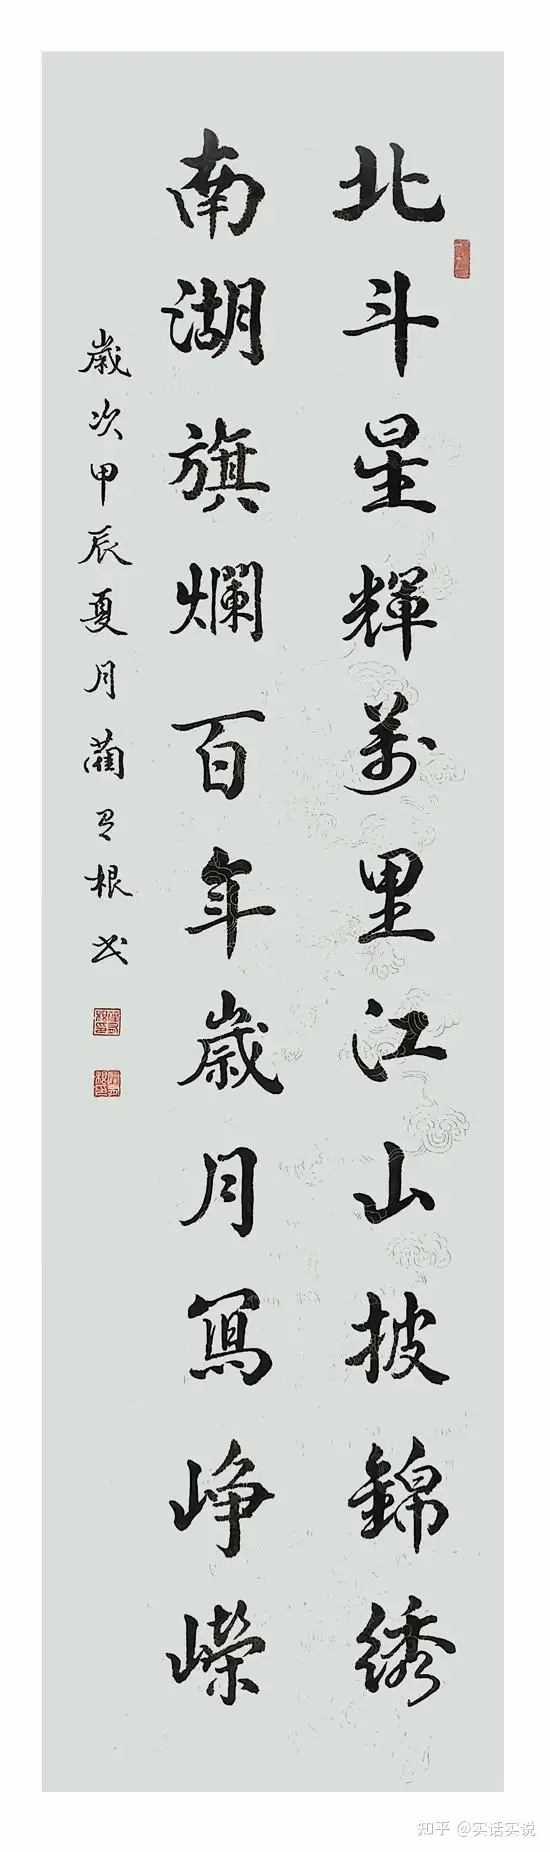 北斗星輝萬里江山披錦绣
南湖旗爛百年歲月寫崢嶸
歲次甲辰夏月蘭有根书
知乎 @实话实说